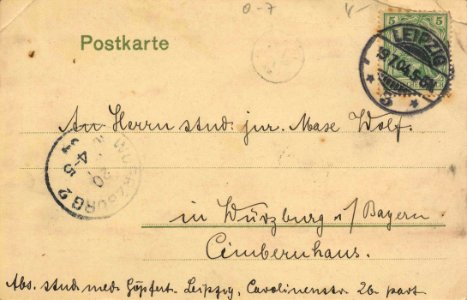 o-7
5 5
Postkarte
LEIPZIG
19.7.04.5-6N
* 3 *
An Herrn stud. jur. Max Wolf.
WÜRZBURG 2
20
4-5
in Würzburg i/Bayern
Cimbernhaus.
Abs. stud. med. Göpfert. Leipzig, Carolinenstr. 26. part